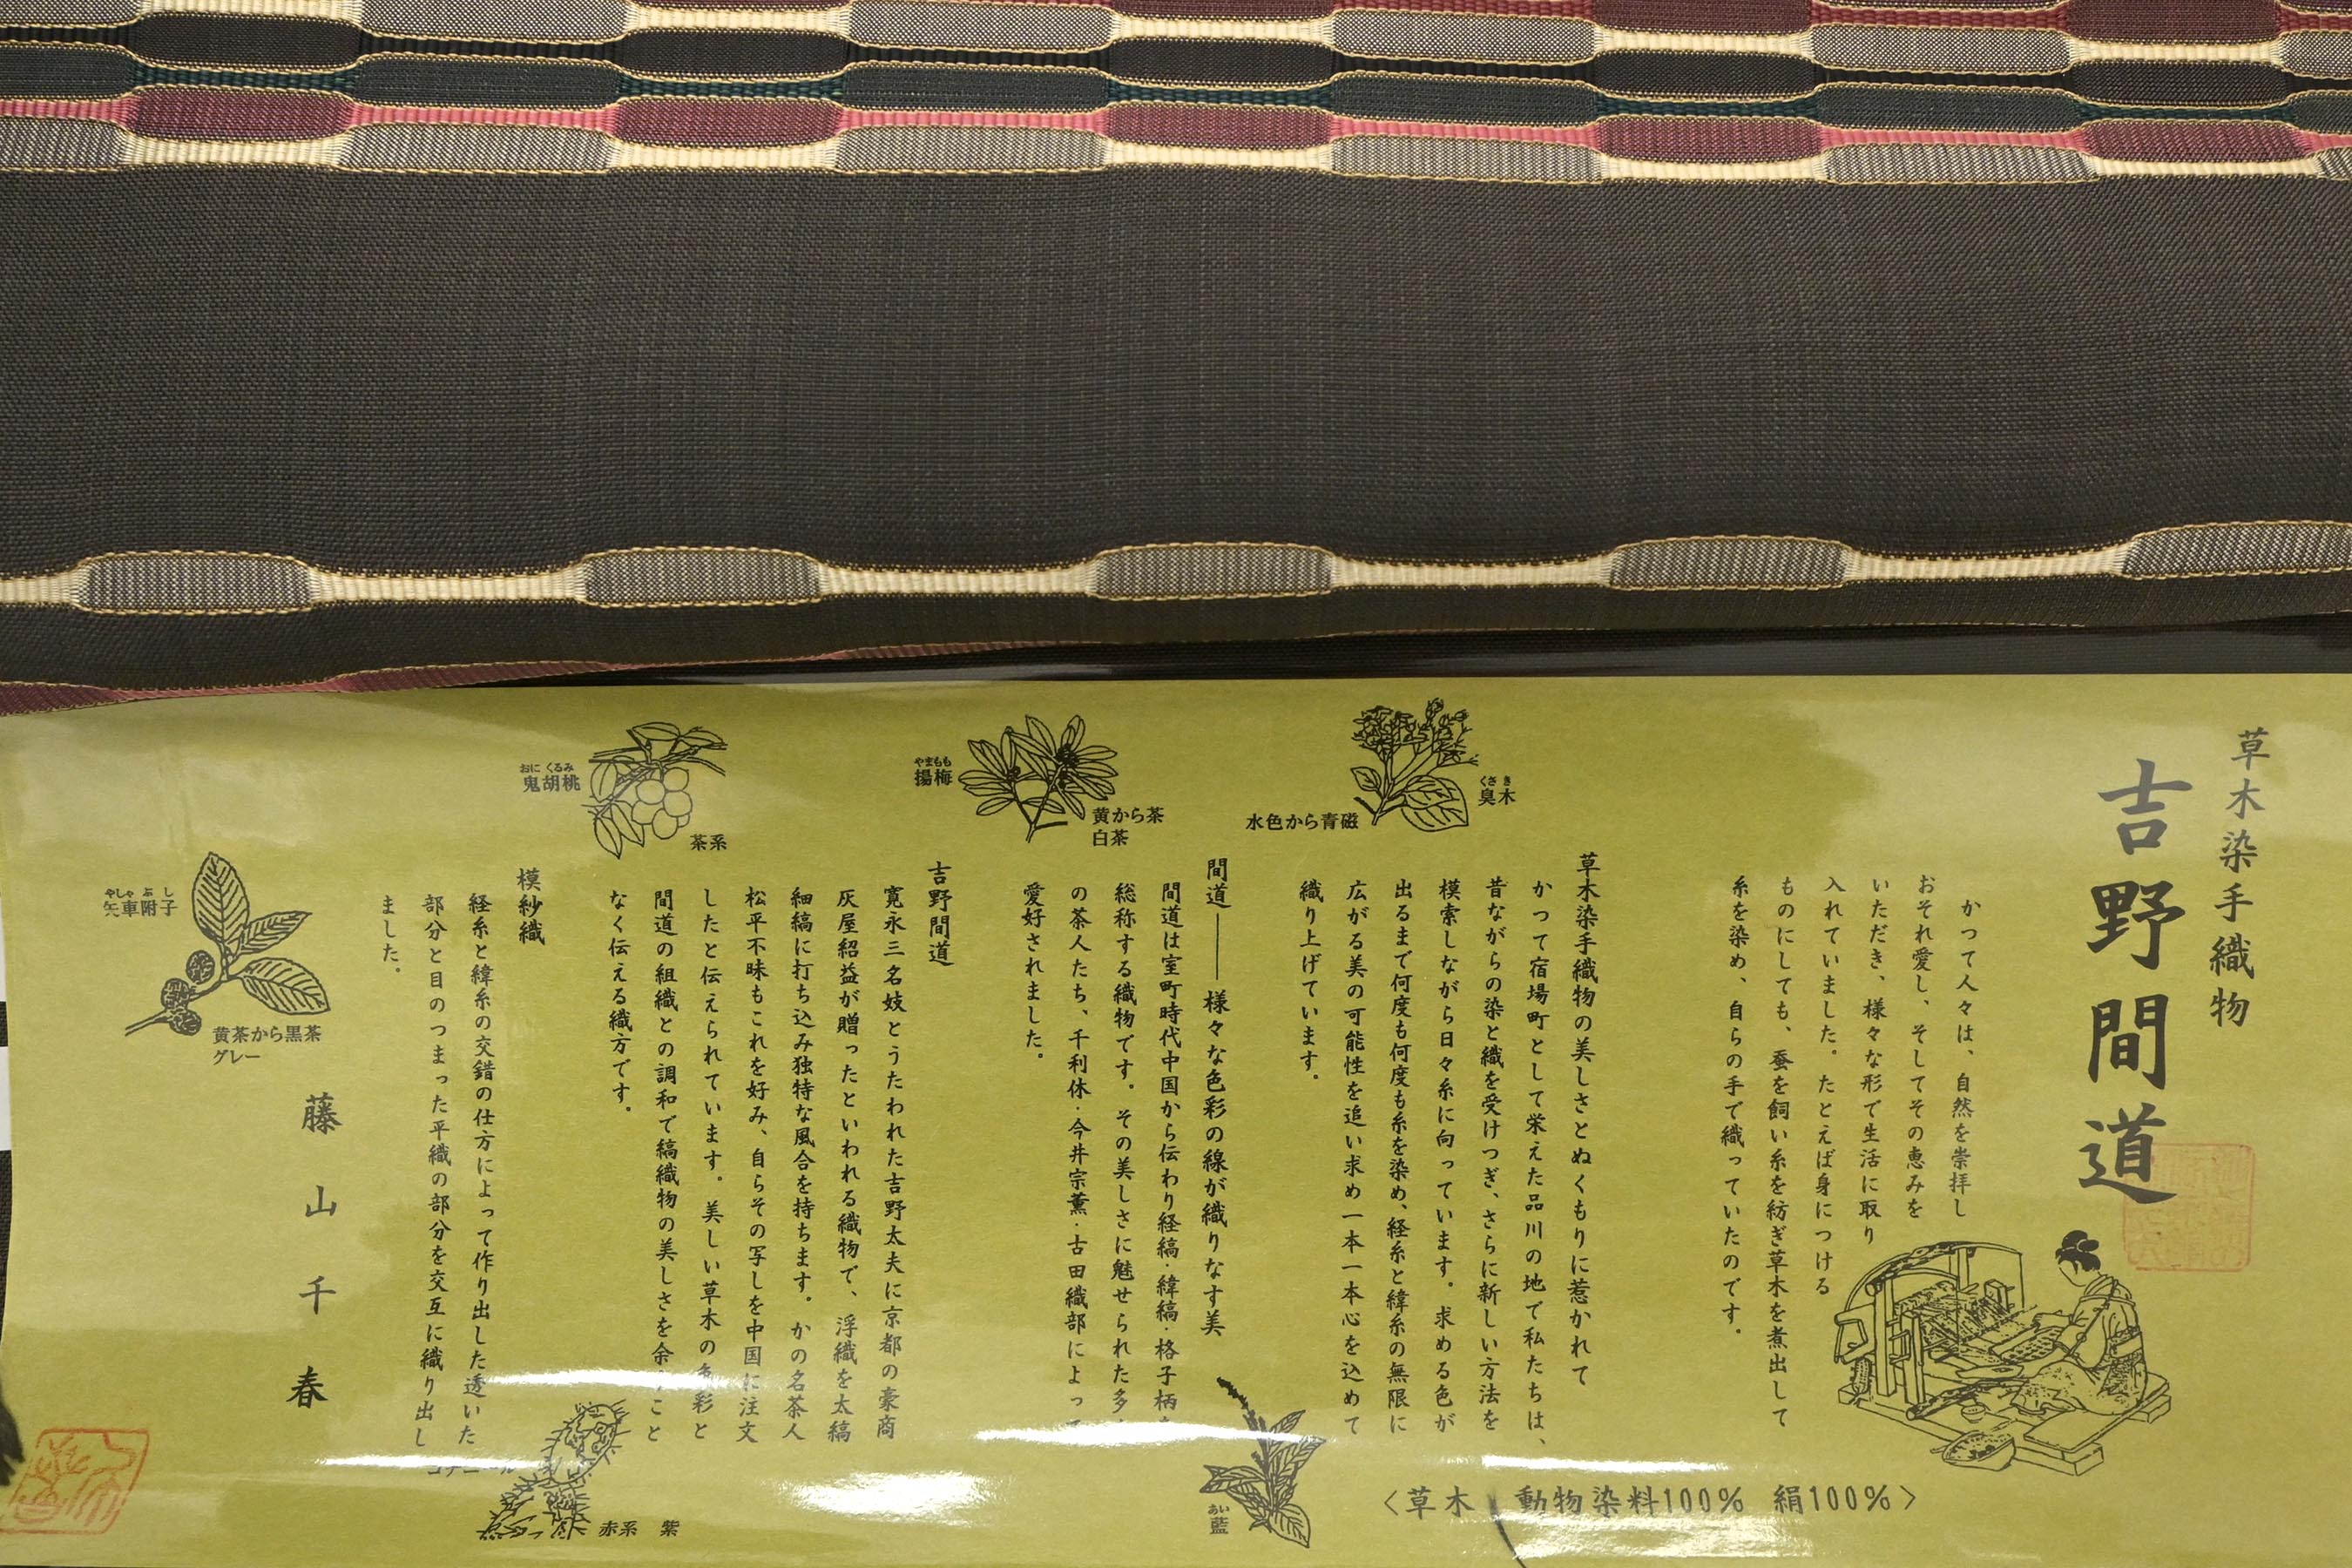 草木染手織物
吉野間道
かつて人々は、自然を崇拝し
おそれ愛し、そしてその恵みを
いただき、様々な形で生活に取り
入れていました。たとえば身につける
ものにしても、蚕を飼い糸を紡ぎ草木を煮出して
糸を染め、自らの手で織っていたのです。
草木染手織物の美しさとぬくもりに惹かれて
かつて宿場町として栄えた品川の地で私たちは、
昔ながらの染と織を受けつぎ、さらに新しい方法を
模索しながら日々糸に向っています。求める色が
出るまで何度も何度も糸を染め、経糸と緯糸の無限に
広がる美の可能性を追い求め一本一本心を込めて
織り上げています。
間道――様々な色彩の線が織りなす美
間道は室町時代中国から伝わり経縞・緯縞・格子柄
総称する織物です。その美しさに魅せられた多
の茶人たち、千利休・今井宗薫・古田織部によっ
愛好されました。
吉野間道
寛永三名妓とうたわれた吉野太夫に京都の豪商
灰屋紹益が贈ったといわれる織物で、浮織を太縞
細縞に打ち込み独特な風合を持ちます。かの名茶人
松平不昧もこれを好み、自らその写しを中国に注文
したと伝えられています。美しい草木の色彩と
間道の組織との調和で縞織物の美しさを余 こと
なく伝える織方です。
模紗織
経糸と緯糸の交錯の仕方によって作り出した透いた
部分と目のつまった平織の部分を交互に織り出し
ました。
藤山千春
くさき
臭木
水色から青磁
やまもも
揚梅
黄から茶
白茶
おにくるみ
鬼胡桃
茶系
やしゃぶし
矢車附子
黄茶から黒茶
グレー
赤系 紫
あい
藍
〈草木 動物染料100% 絹100%〉